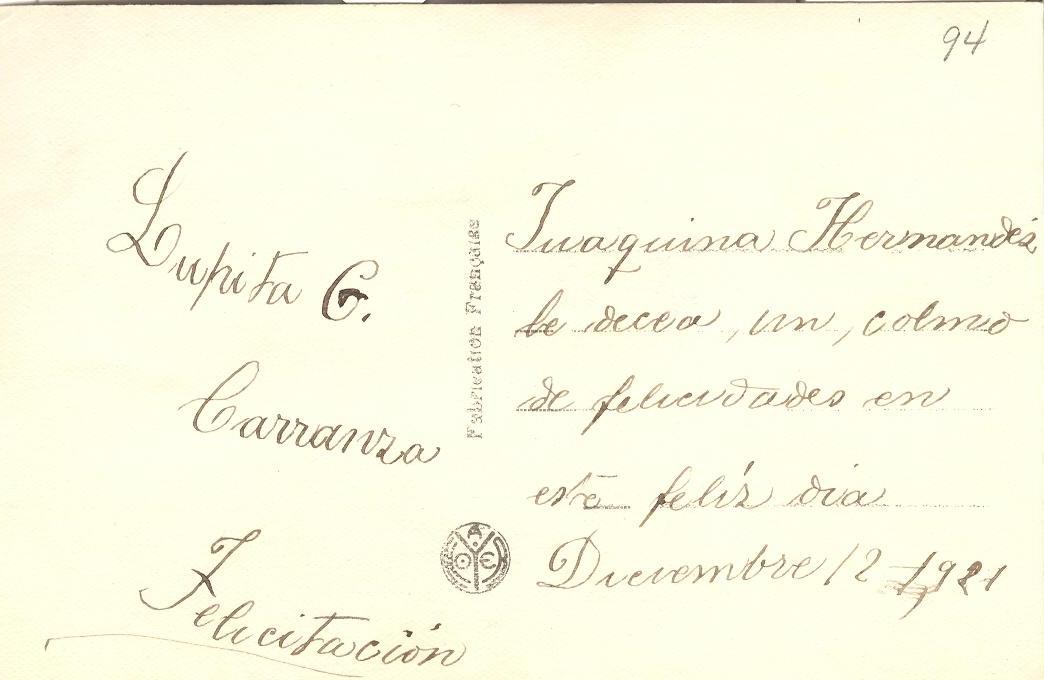 94
Lupita G.
Carranza
Felicitación
Fabrication Française
Juaquina Hernandéz
le decea, un, colmo
de felicidades en
este felíz dia
Diciembre 12 1921